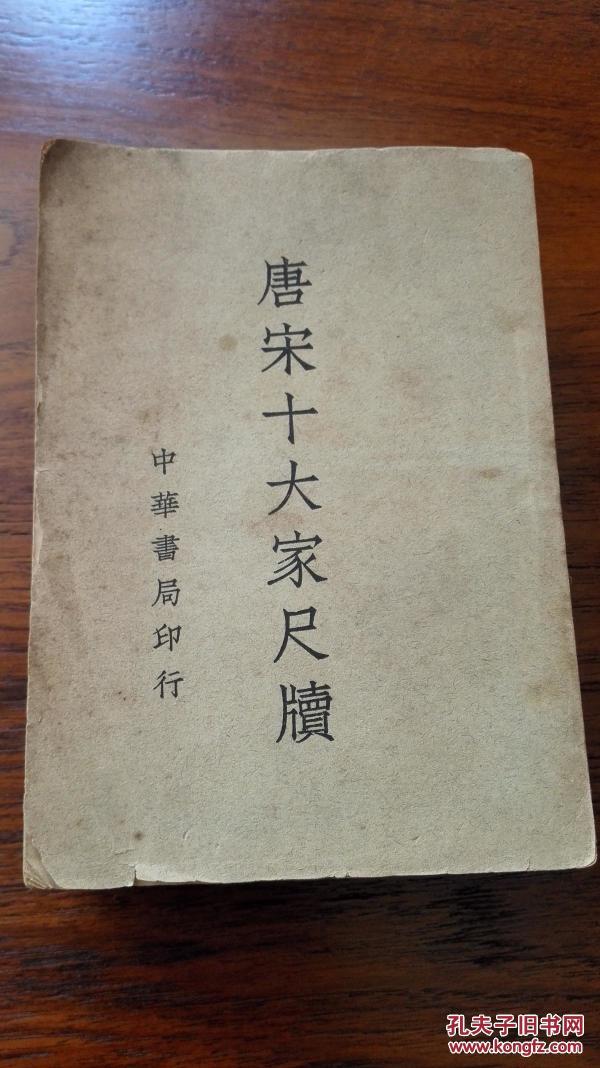 唐宋十大家尺牘
中華書局印行
孔夫子旧书网
www.kongfz.com